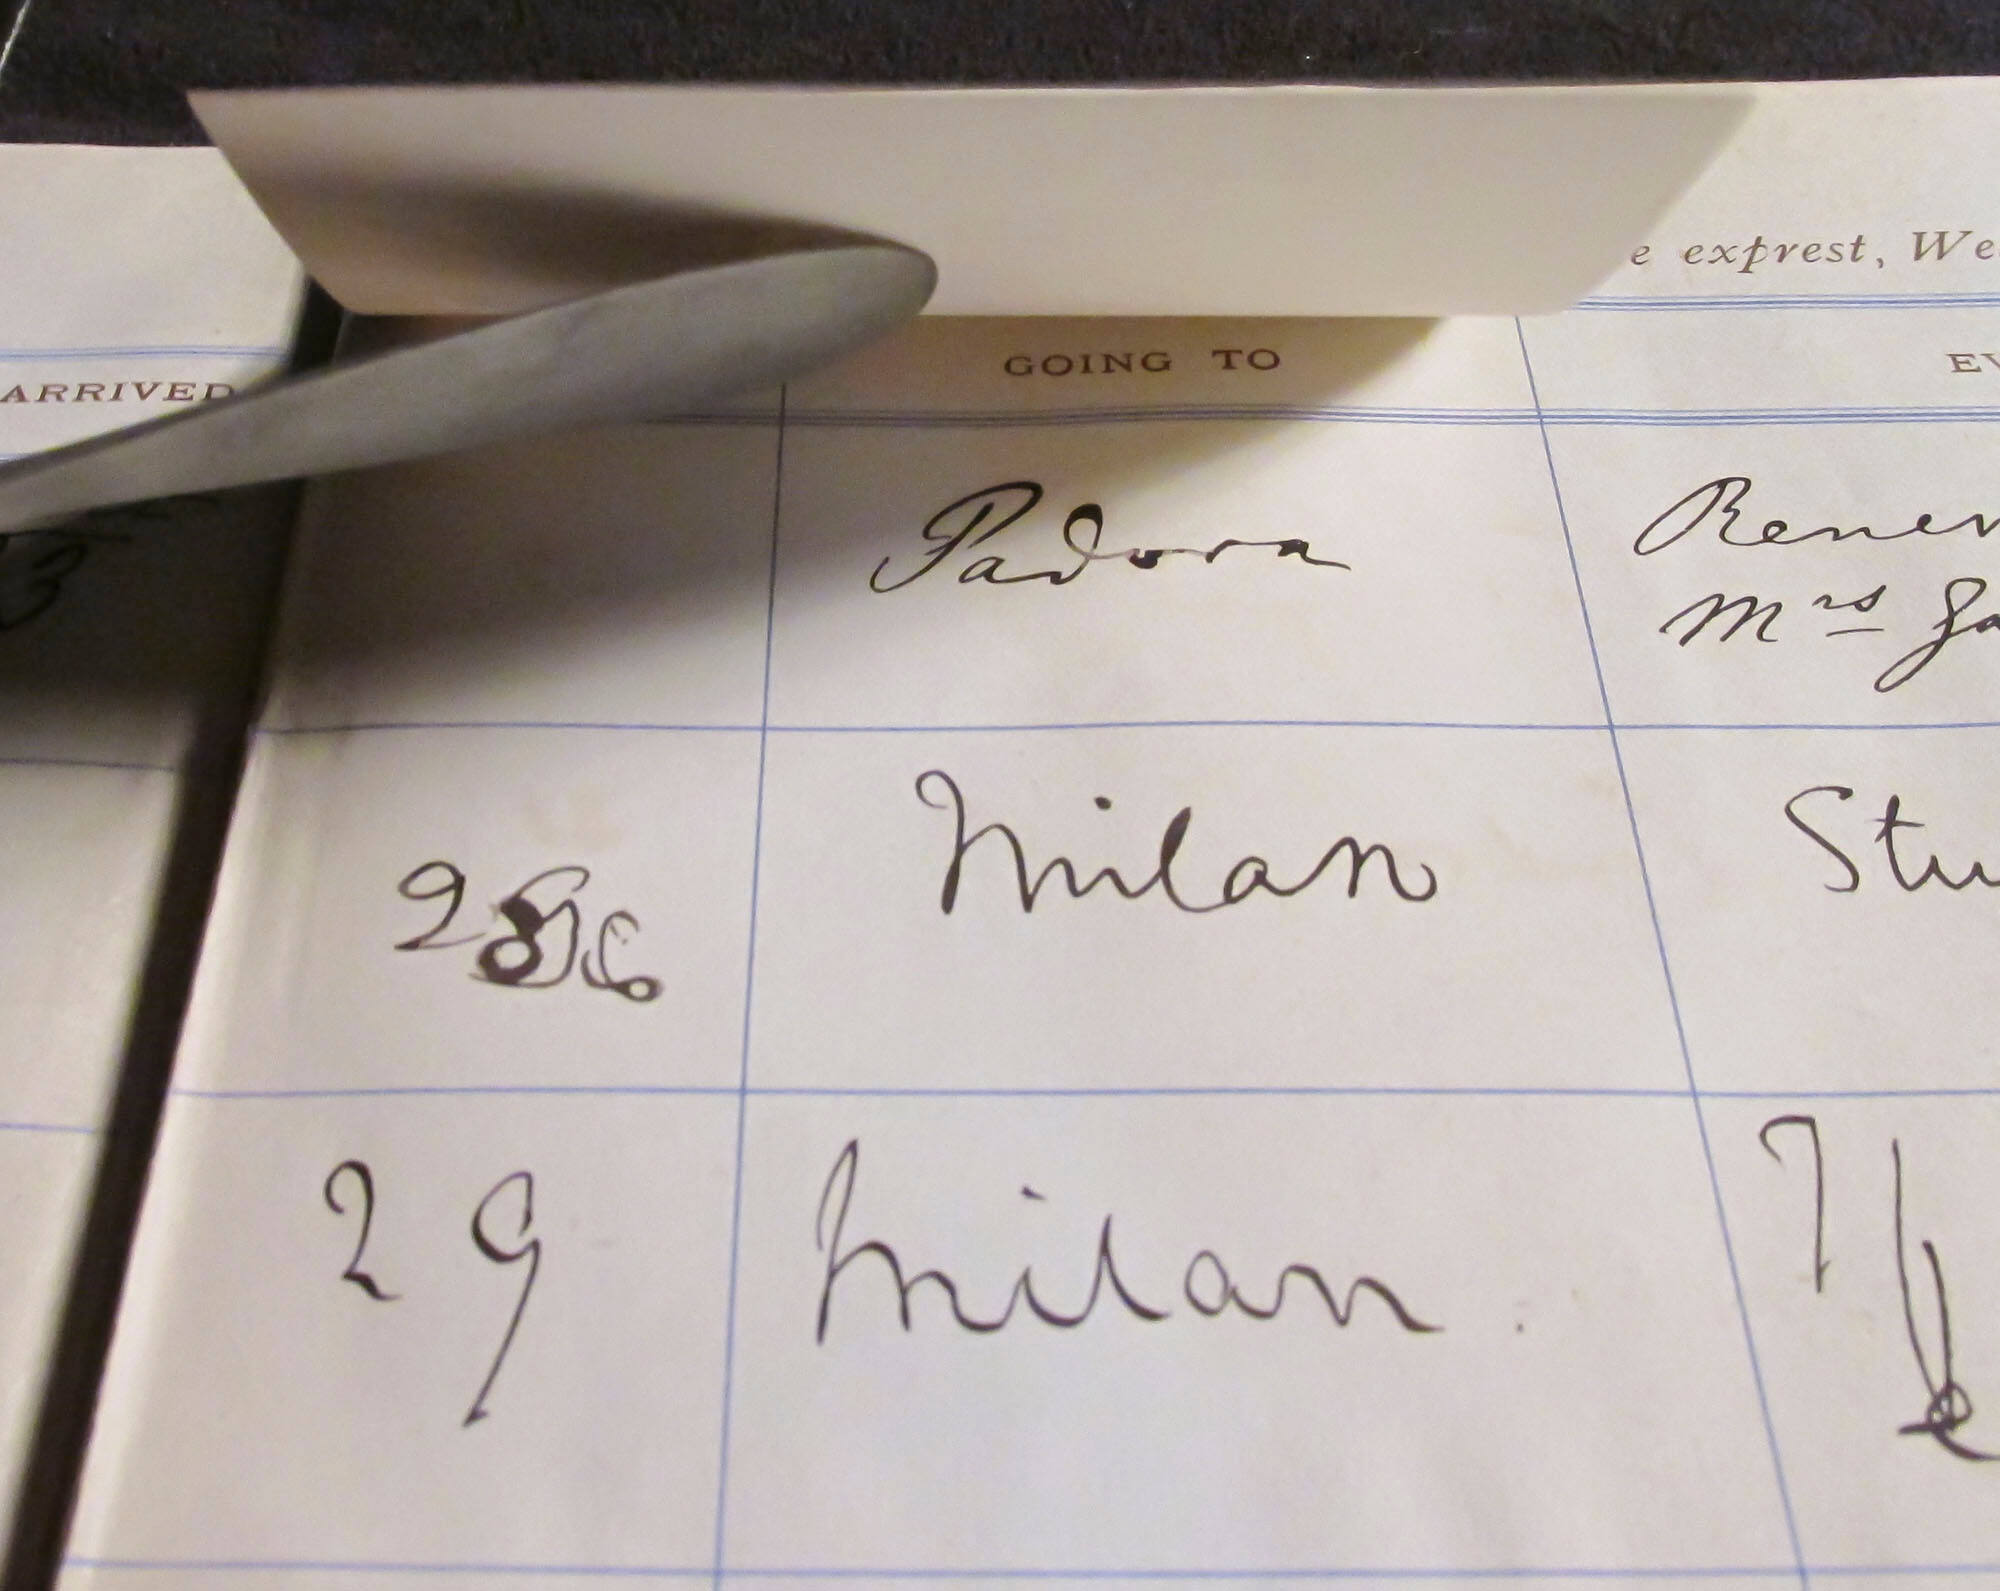 e exprest, We
ARRIVED
GOING TO
EV
Padova
Renew
Mrs Ga
28
Milan
Stu
29
Milan.